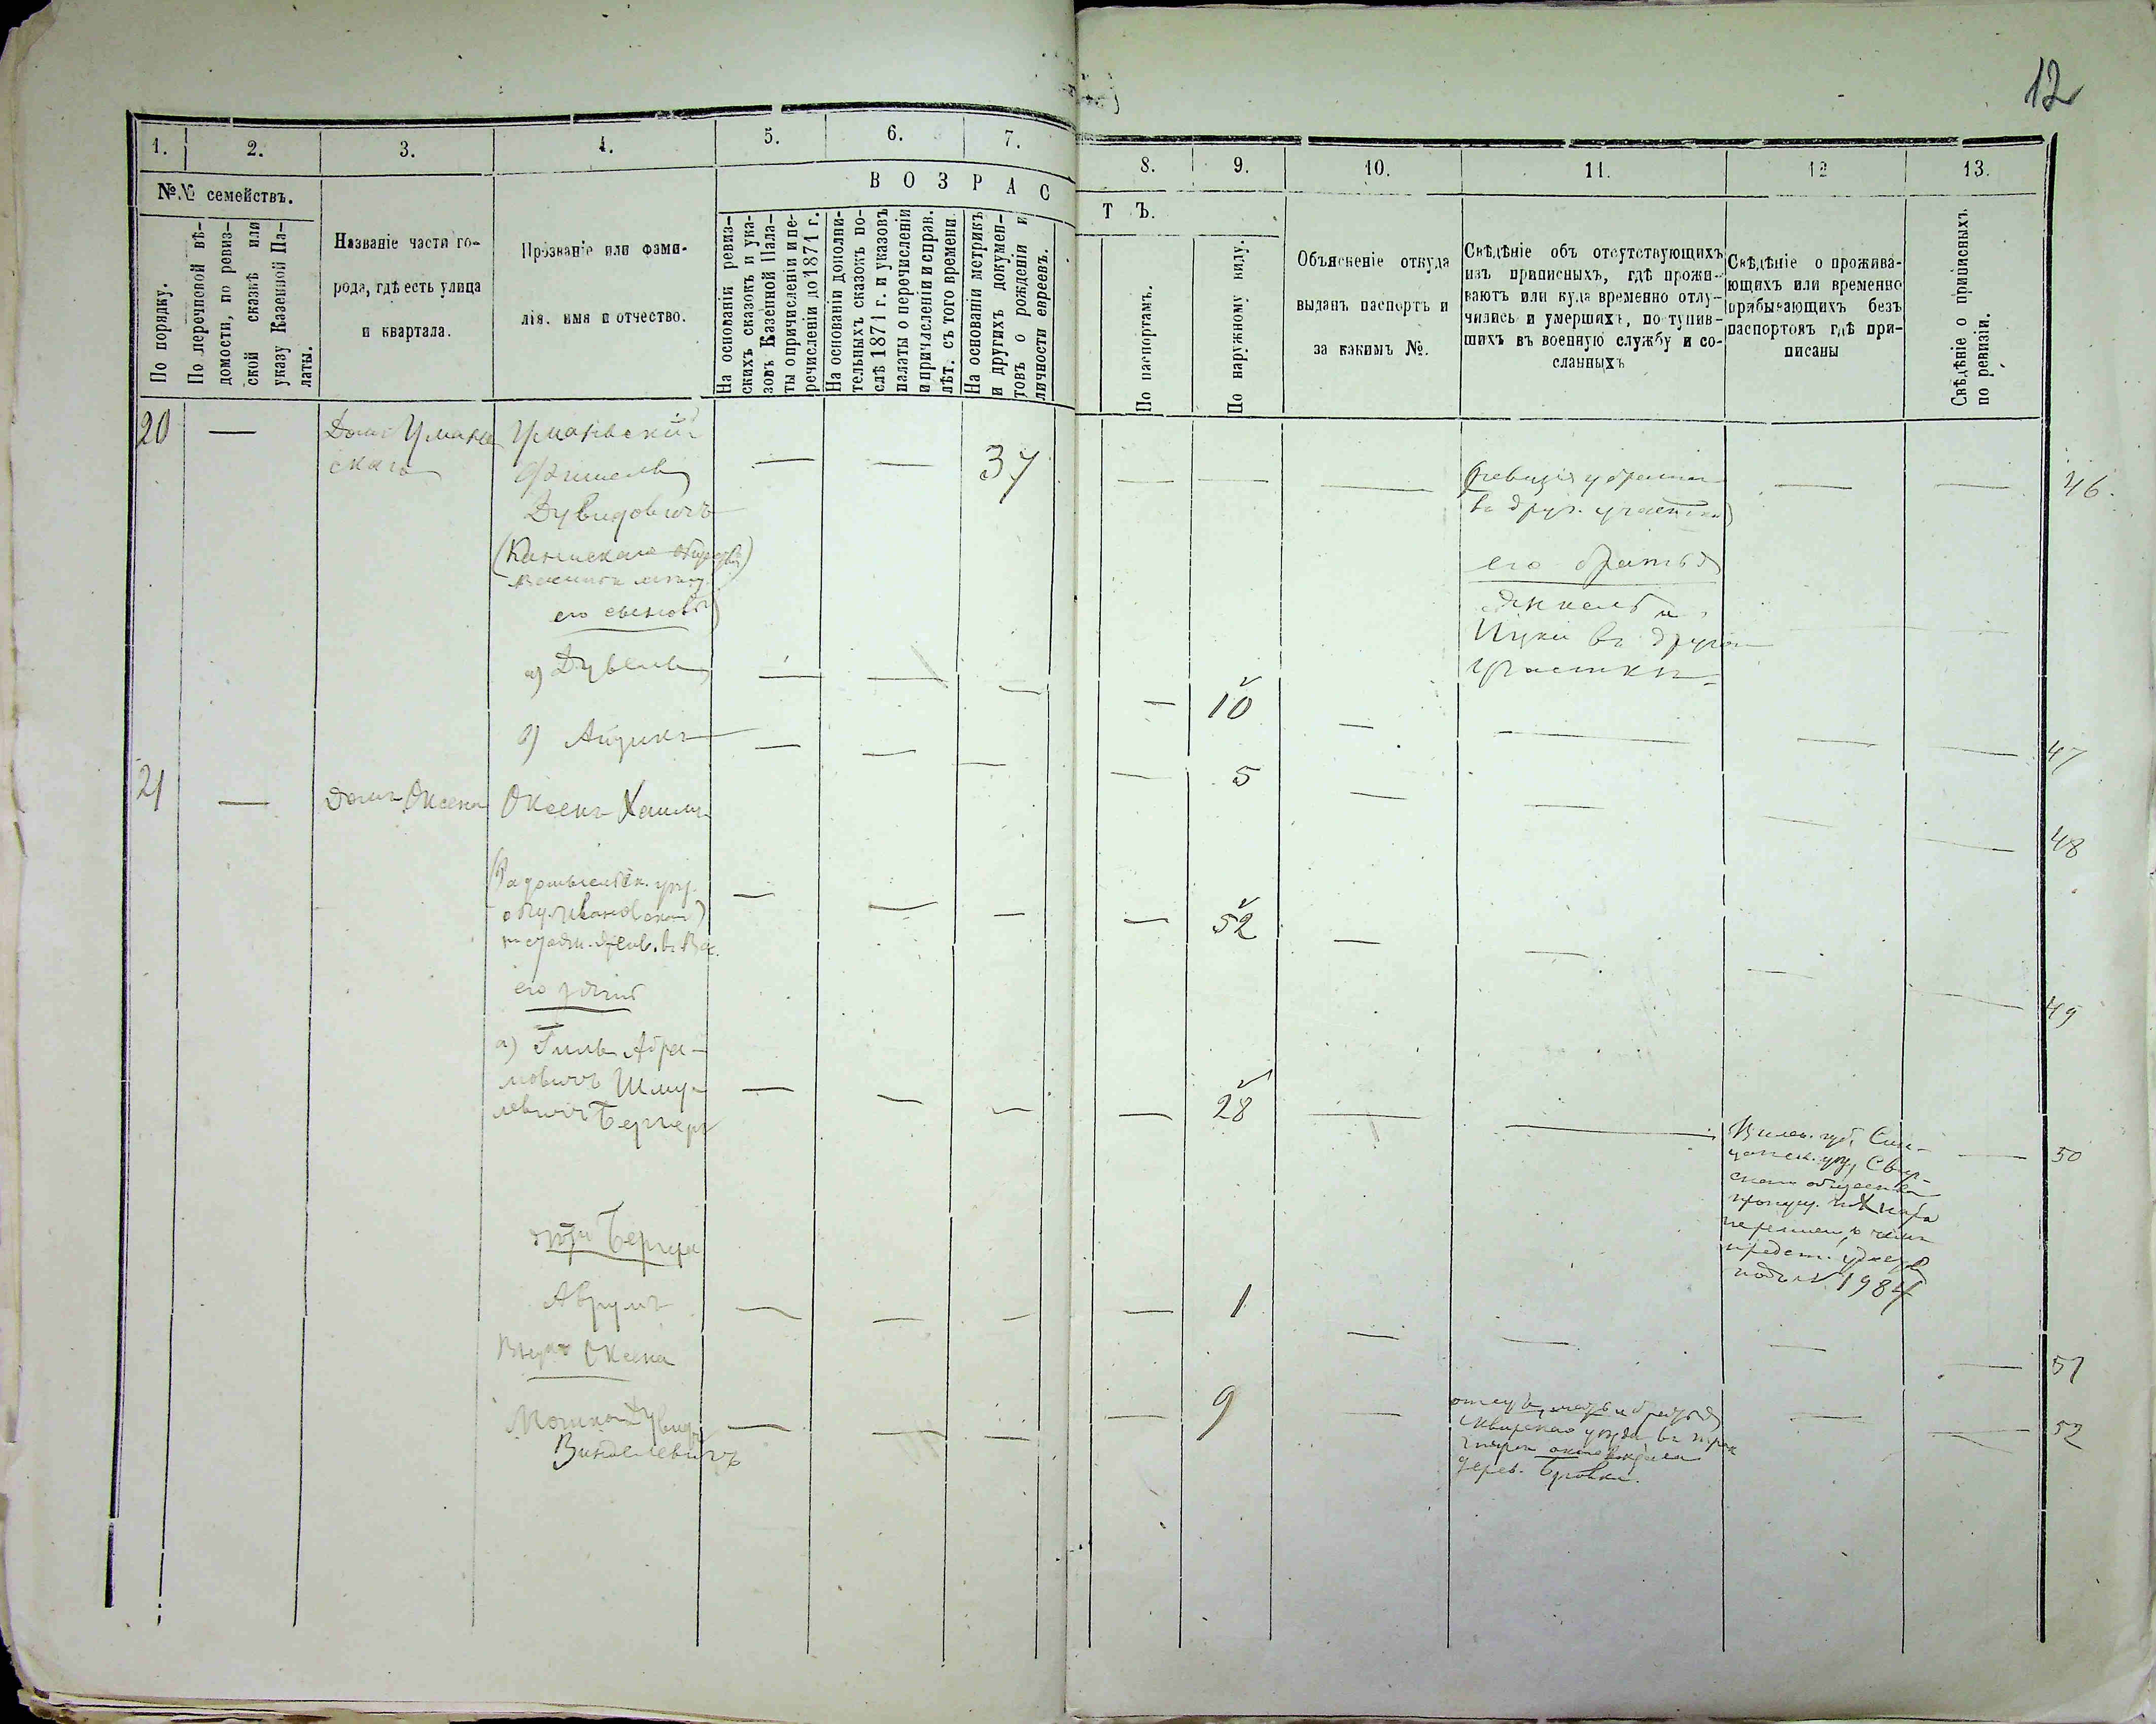 12
1. 2. 3. 4. 5. 6. 7. 8. 9. 10. 11. 12 13.
№№ семействъ.
По порядку.
По перечневой вѣ-
домости, по ревиз-
ской сказкѣ или
указу Казенной Па-
латы.
Названіе части го-
рода, гдѣ есть улица
и квартала.
Прозваніе или фами-
лія. имя и отчество.
ВОЗРАС
ТЪ.
На основаніи ревиз-
скихъ сказокъ и ука-
зовъ Казенной Пала-
ты о причисленіи и пе-
речисленіи до 1871 г.
На основаніи дополни-
тельныхъ сказокъ по-
слѣ 1871 г. и указовъ
палаты о перечисленіи
и причисленіи и справ.
лѣт. съ того времени.
На основаніи метрикъ
и другихъ докумен-
товъ о рожденіи и
личности евреевъ.
По паспортамъ.
По наружному виду.
Объясненіе откуда
выданъ паспортъ и
за какимъ №.
Свѣдѣніе объ отсутствующихъ
изъ приписныхъ, гдѣ прожи-
ваютъ или куда временно отлу-
чились и умершихъ, поступив-
шихъ въ военную службу и со-
сланныхъ
Свѣдѣніе о прожива-
ющихъ или временно
прибывающихъ безъ
паспортовъ гдѣ при-
писаны
Свѣдѣніе о приписныхъ
по ревизіи.
20 — Домъ Уманв
скаго
Уманвскій
Фишель
Дувидовичъ
— — 37 — — — — — 46.
(Каневскаго общества)
его сыновья
(ревизія у брата
въ друг. участкѣ)
его братья
Янкель и
Ицко въ другом
участкѣ
а) Дувель — — — — 10 — — — — 47
б) Айзикъ — — — — 5 — — — — 48
21 — Домъ Оксена Оксенъ Хаимъ
(Радомысльск. уѣз.
общ. Ивановскаго)
— — — — 52 — — — — 49
его зять
а) Гиль Абра-
мовичъ Шму-
левичъ Бергеръ
— — — — 28 — — — 50
Вилен. губ. Свен-
цянск. уѣз. Свир-
скаго общества
1984
дѣти Бергера
Аврумъ — — — — 1 — — — — 51
Внукъ Оксена
Мошко Дувидъ
Винокелевичъ
— — — — 9 — — — 52
отецъ, мать и братья
Сквирскаго уѣзда въ
дерев. Бровки.